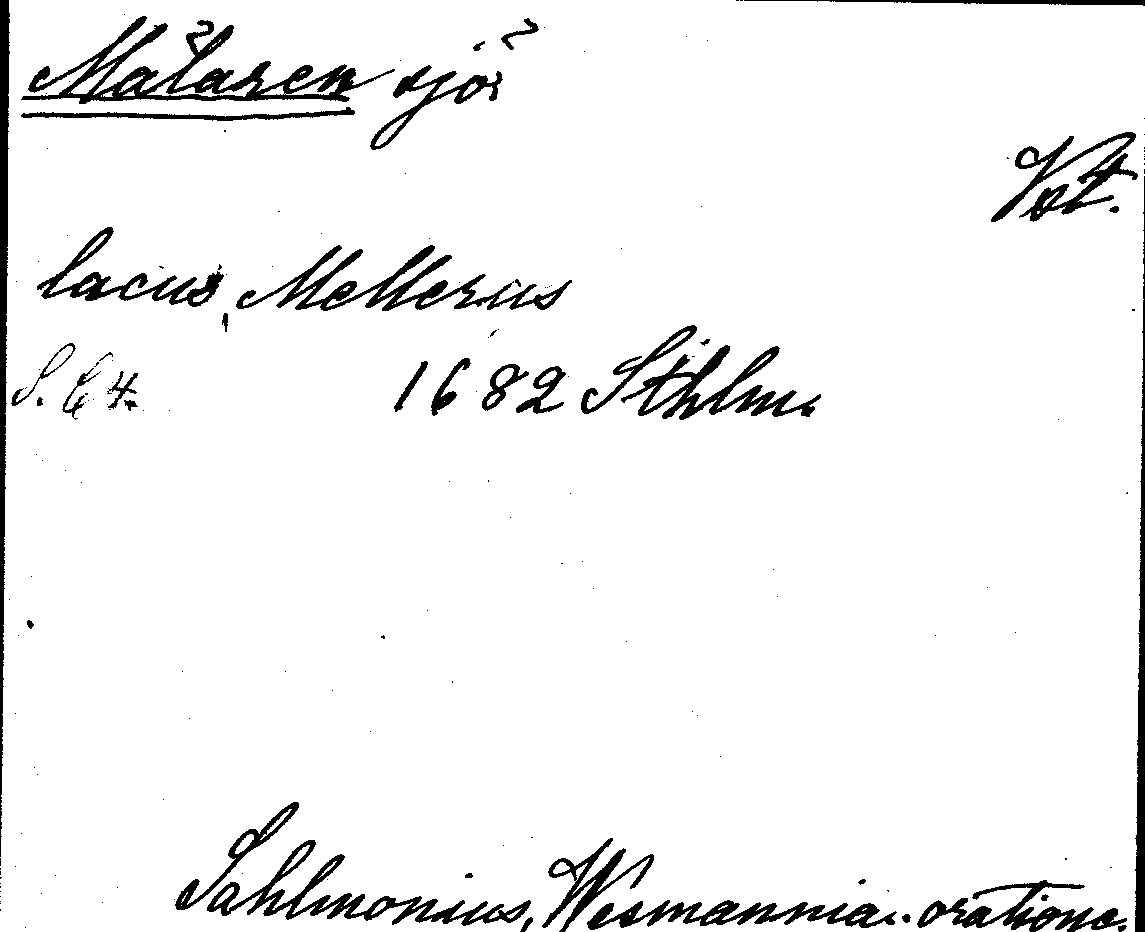 Mälaren sjö
Vst.
lacus, Mellerus
S. C 4.
1682 Sthlm.
Sahlmonius, Wesmannia.. oratione.